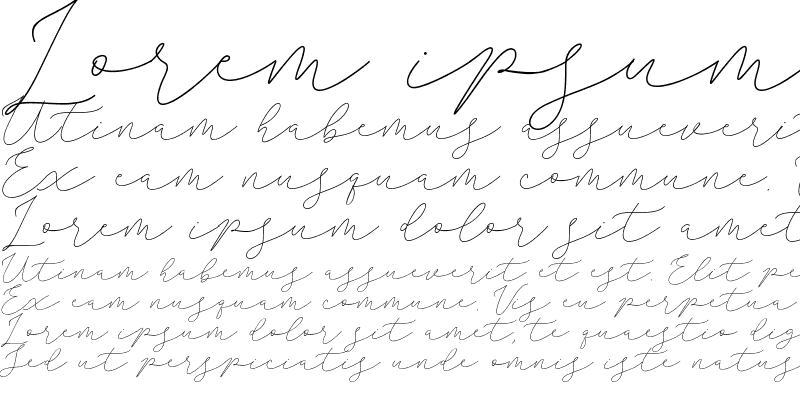 Lorem ipsum
Utinam habemus assueverit
Ex eam nusquam commune.
Lorem ipsum dolor sit amet
Utinam habemus assueverit et est. Elit pe
Ex eam nusquam commune. Vis eu perpetua
Lorem ipsum dolor sit amet, te quaestio dig
Sed ut perspiciatis unde omnis iste natus